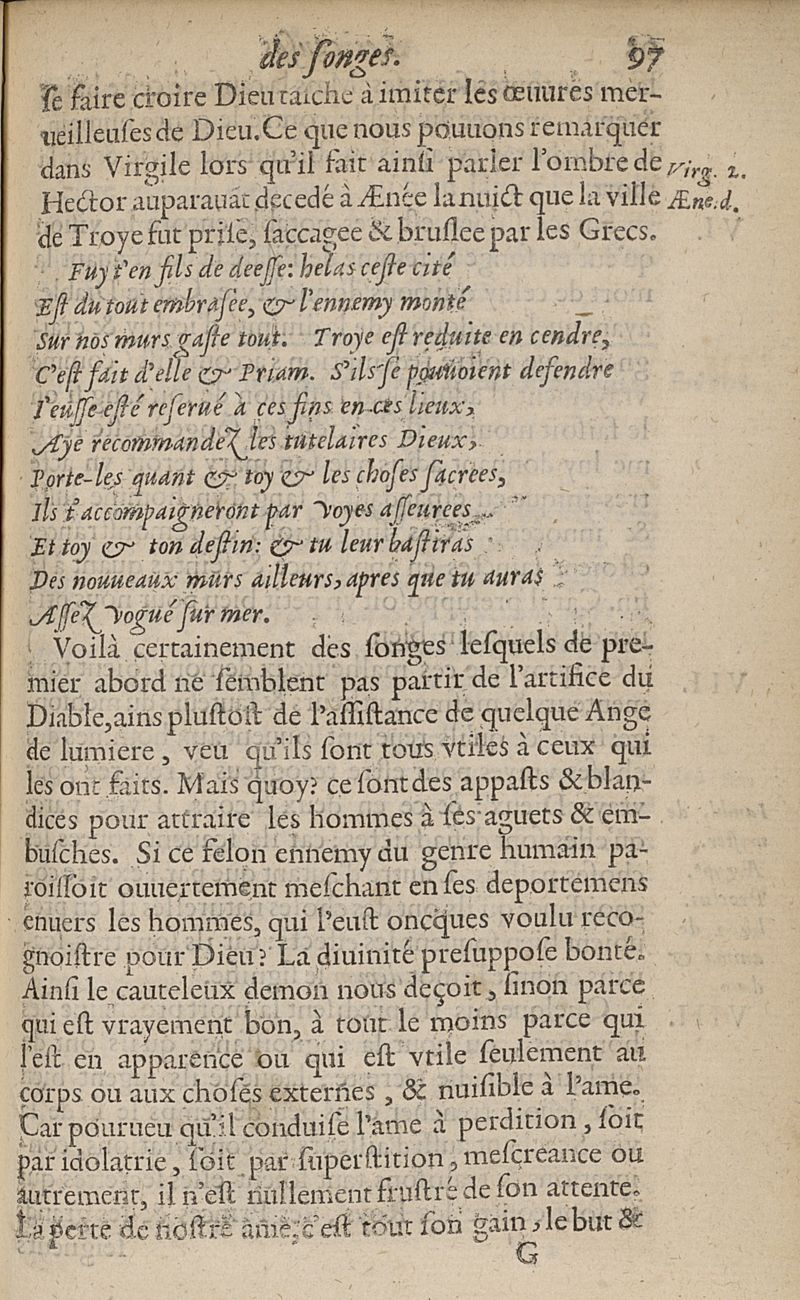 des ſonges. 97
ſe faire croire Dieu taiche à imiter les œuures mer-
ueilleuſes de Dieu. Ce que nous pouuons remarquer
dans Virgile lors qu'il fait ainſi parler l'ombre de Virg. 2.
Hector auparauāt decedé à Ænée la nuict que la ville Æne. d.
de Troye fut priſe, ſaccagee & bruſlee par les Grecs.
Fuy t'en fils de deeſſe: helas ceſte cité
Eſt du tout embraſée, & l'ennemy monté
Sur nos murs gaſte tout. Troye eſt reduite en cendre,
C'eſt fait d'elle & Priam. S'ils ſe pouuoient defendre
I'euſſe eſté reſerué à ces fins en ces lieux,
Aye recommandez les tutelaires Dieux,
Porte-les quant & toy & les choſes ſacrees,
Ils t'accompaigneront par voyes aſſeurees
Et toy & ton deſtin: & tu leur baſtiras
Des nouueaux murs ailleurs, apres que tu auras
Aſſez vogué ſur mer.
Voilà certainement des ſonges leſquels de pre-
mier abord ne ſemblent pas partir de l'artifice du
Diable, ains pluſtoſt de l'aſſiſtance de quelque Ange
de lumiere, veu qu'ils ſont tous vtiles à ceux qui
les ont faits. Mais quoy? ce ſont des appaſts & blan-
dices pour attraire les hommes à ſes aguets & em-
buſches. Si ce felon ennemy du genre humain pa-
roiſſoit ouuertement meſchant en ſes deportemens
enuers les hommes, qui l'euſt oncques voulu reco-
gnoiſtre pour Dieu? La diuinité preſuppoſe bonté.
Ainſi le cauteleux demon nous deçoit, ſinon parce
qui eſt vrayement bon, à tout le moins parce qui
l'eſt en apparence ou qui eſt vtile ſeulement au
corps ou aux choſes externes, & nuiſible à l'ame.
Car pourueu qu'il conduiſe l'ame à perdition, ſoit
par idolatrie, ſoit par ſuperſtition, meſcreance ou
autrement, il n'eſt nullement fruſtré de ſon attente.
La perte de noſtre ame, c'eſt tout ſon gain, le but &
G